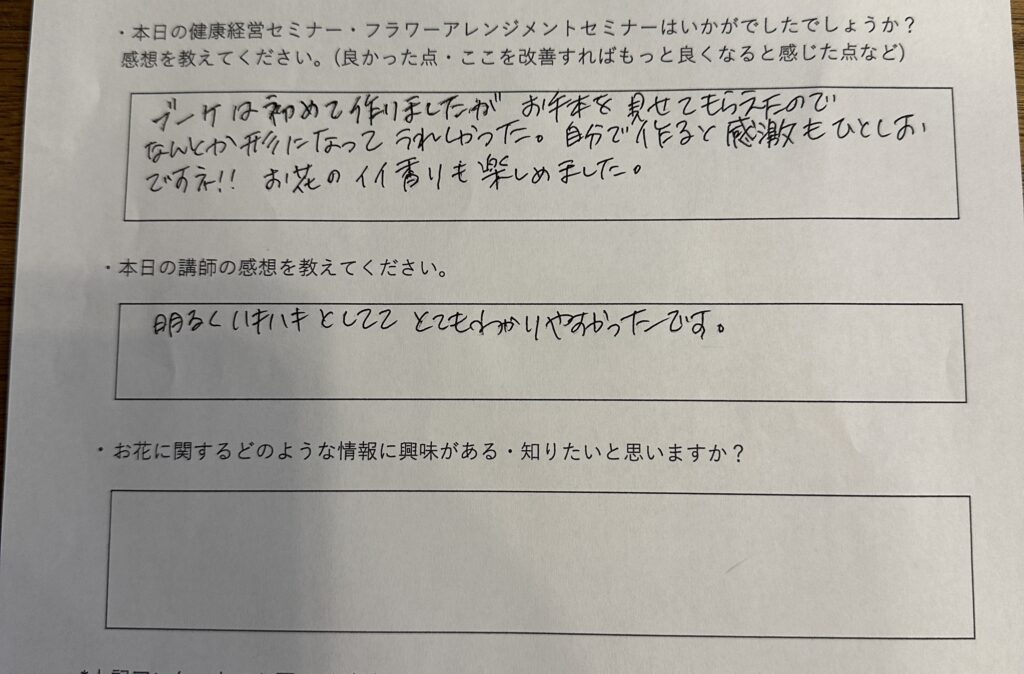 ・本日の健康経営セミナー・フラワーアレンジメントセミナーはいかがでしたでしょうか？
感想を教えてください。（良かった点・ここを改善すればもっと良くなると感じた点など）
ブーケは初めて作りましたが お手本を見せてもらえたので
なんとか形になって うれしかった。自分で作ると感激もひとしお
ですネ!! お花のイイ香りも楽しめました。
・本日の講師の感想を教えてください。
明るくハキハキとしてて とてもわかりやすかったです。
・お花に関するどのような情報に興味がある・知りたいと思いますか？